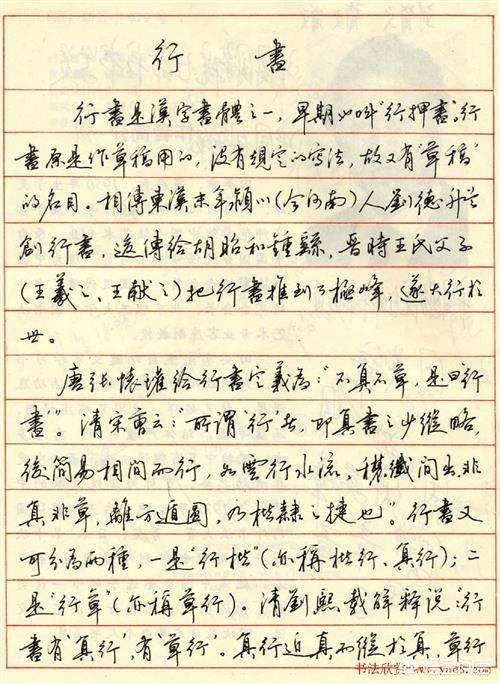 行書
行書是漢字書體之一，早期也叫“行押書”。行
書原是作草稿用的，沒有規定的寫法，故又有“草稿”
的名目。相傳東漢末年潁川（今河南）人劉德升首
創行書，遂傳給胡昭和鍾繇，晉時王氏父子
（王羲之、王献之）把行書推到了極峰，遂大行於
世。
唐張懷瓘給行書定義為：“不真不草，是曰行
書”。清宋曹云：所謂‘行’者，即真書之少縱略，
後簡易相間而行，如雲行水流，穠纖間出，非
真非草，離方遁圓，乃楷隸之捷也”。行書又
可分為兩種，一是“行楷”（亦稱楷行、真行）；二
是“行草”（亦稱草行）。清劉熙載解釋說：“行
書有‘真行’，有‘草行’。真行近真而縱於真，草行
书法欣赏